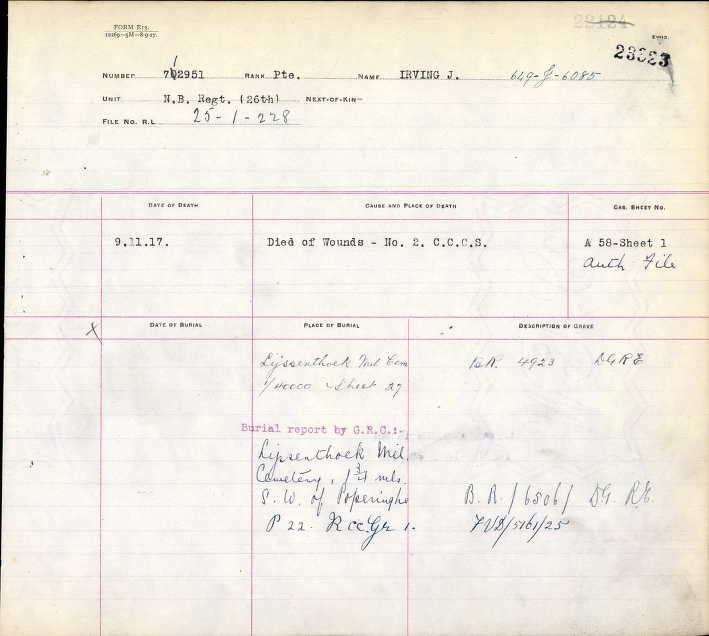 FORM E13.
10269—5M—8-9-27.
23124
23323
NUMBER 712951 RANK Pte. NAME IRVING J. 649-J-6085
UNIT N.B. Regt. (26th) NEXT-OF-KIN—
FILE NO. R.L. 25-1-228
DATE OF DEATH CAUSE AND PLACE OF DEATH CAS. SHEET NO.
9.11.17. Died of Wounds - No. 2. C.C.C.S. A 58-Sheet 1
Auth File
X DATE OF BURIAL PLACE OF BURIAL DESCRIPTION OF GRAVE
Lijssenthoek Mil Cem B.R. 4923 DGRE
1/40000 Sheet 27
Burial report by G.R.C.:-
Lijssenthoek Mil.
Cemetery, 1 3/4 mls.
S. W. of Poperinghe B.R./6506/ DG. RE.
P 22. R CC. Gr 1. FVD/5161/25